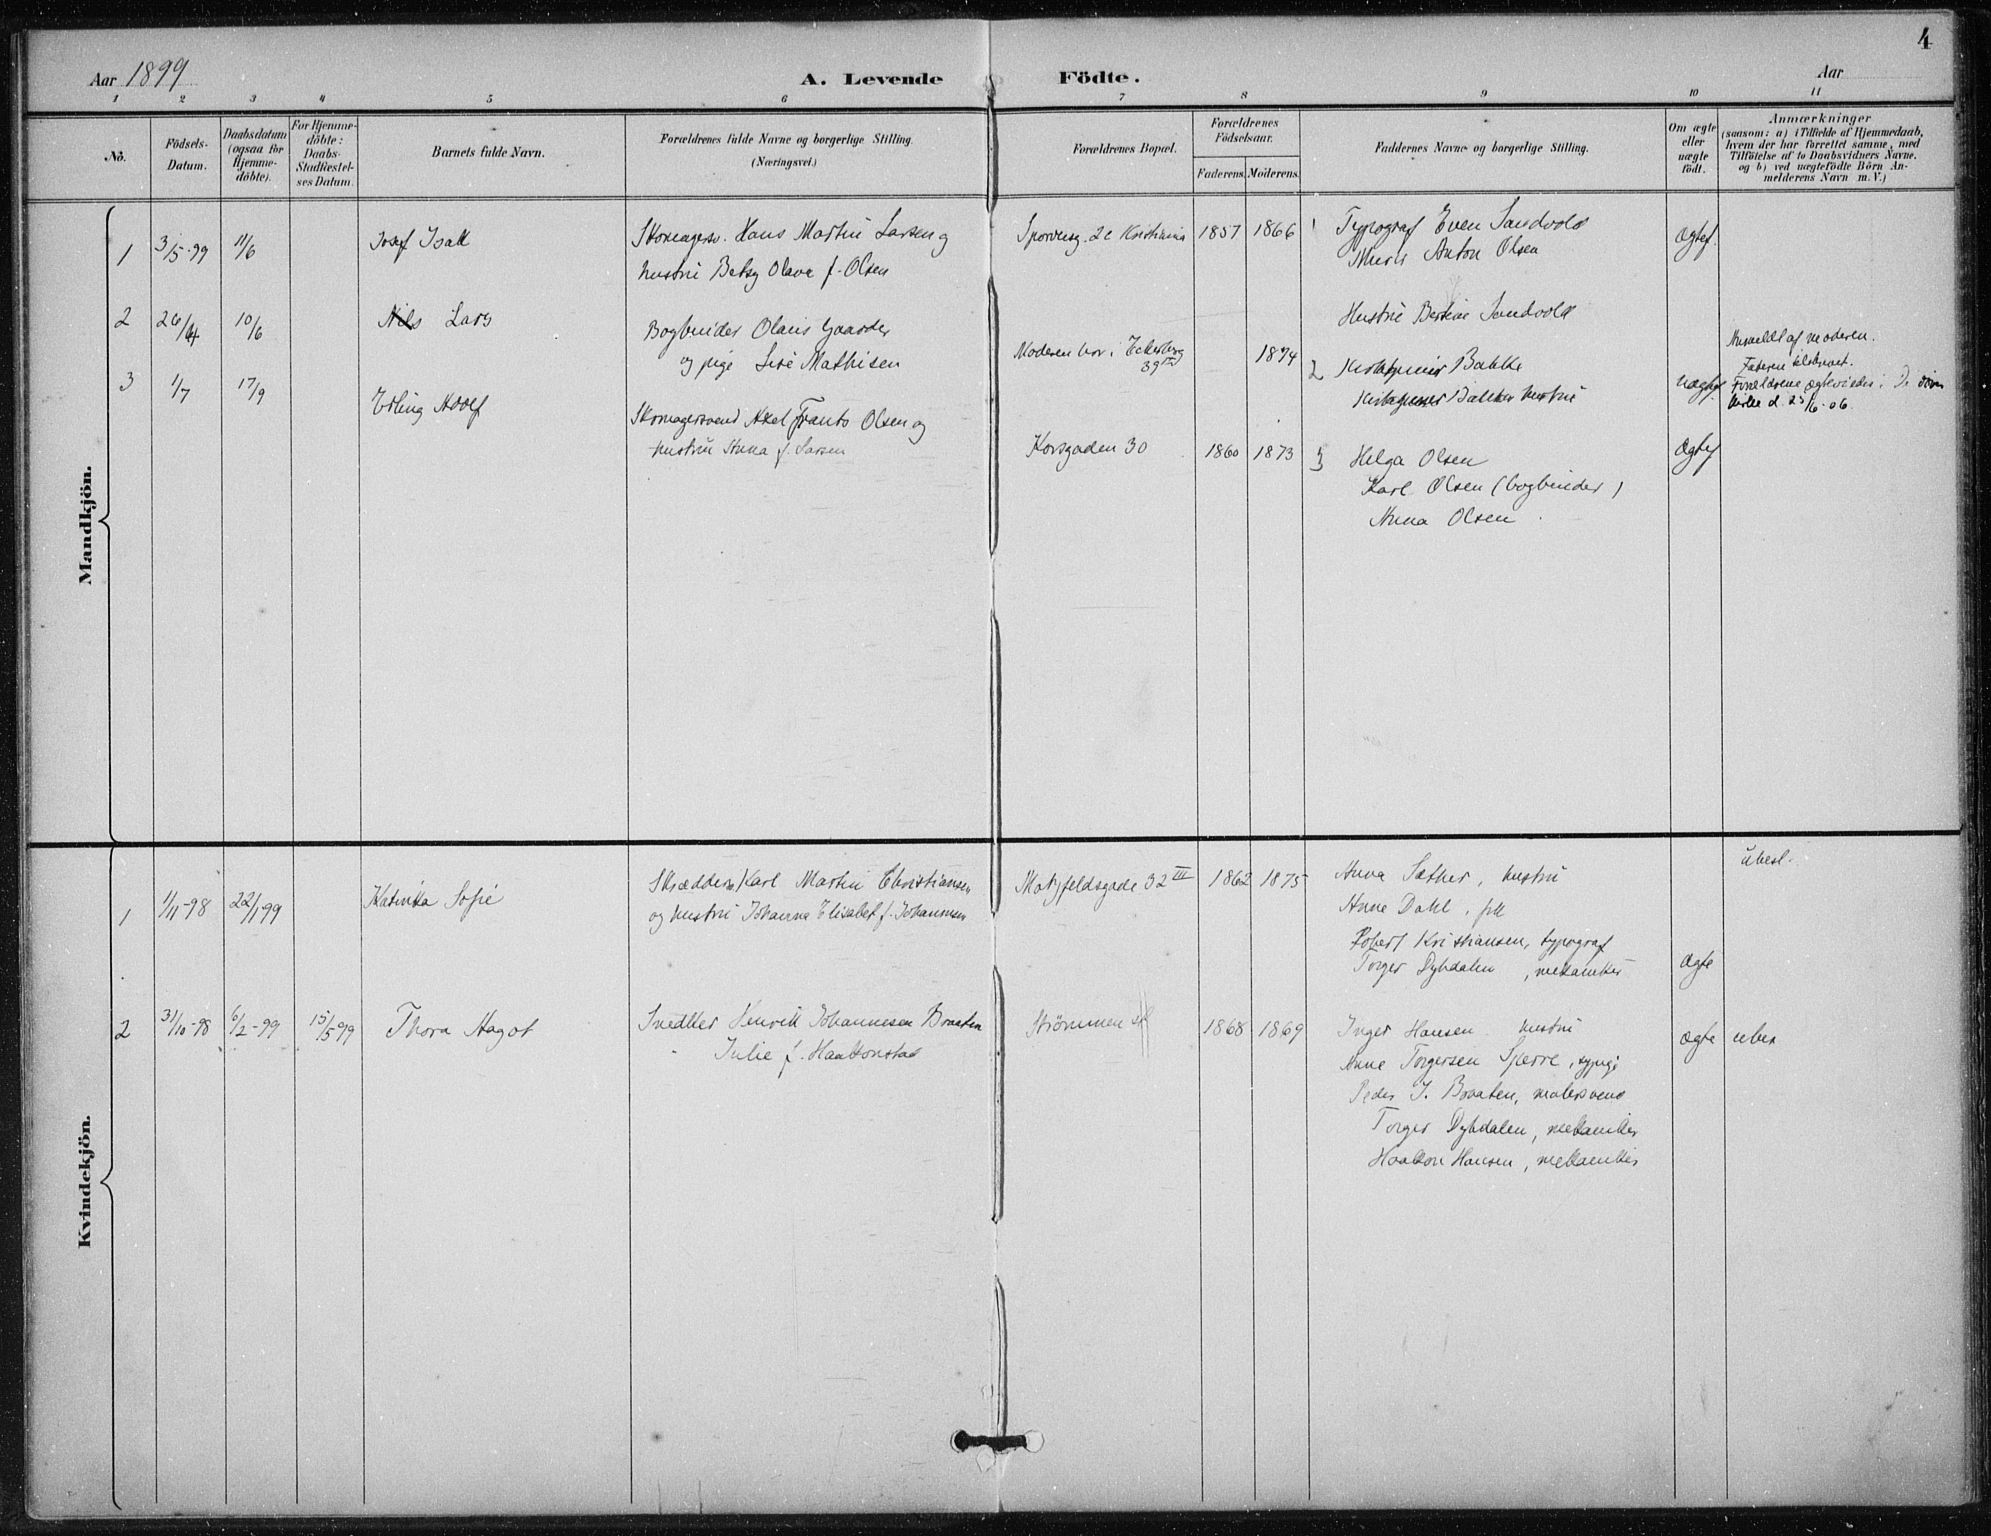 4
Aar 1899
A. Levende Födte.
Aar
1 2 3 4 5 6 7 8 9 10 11
No.
Födsels-
Datum.
Daabsdatum
(ogsaa for
Hjemme-
döbte).
For Hjemme-
döbte:
Daabs-
Stadfæstel-
ses Datum.
Barnets fulde Navn.
Forældrenes fulde Navne og borgerlige Stilling.
(Næringsvei.)
Forældrenes Bopæl.
Forældrenes
Födselsaar.
Faderens. Moderens.
Faddernes Navne og borgerlige Stilling.
Om ægte
eller
uægte
födt.
Anmærkninger
(saasom: a) i Tilfælde af Hjemmedaab,
hvem der har forrettet samme, med
Tilföielse af to Daabsvidners Navne,
og b) ved uægtefödte Börn An-
melderens Navn m. V.)
Mandkjön.
1 3/5-99 11/6 Josef Isak
Skomagersv. Hans Martin Larsen og
hustru Betsy Olava f. Olsen
Sporvensg. 2c Kristiania 1857 1866
1 Typograf Even Sandvold
Anton Olsen
Hustru Bertine Sandvold
Ægtef.
2 26/4 10/6 Nils Lars
Bogbinder Olaus Gaarder
og pige Lise Mathisen
Moderen bor i Eckersberg
39 IV
1874
2 Bakke
Bakkes hustru
uægtef.
Anmeldt af moderen.
Faderen tilstaaet.
Forældrene ægteviedes i De
kirke d. 25/6-06.
3 1/7 17/9 Erling Adolf
Skomagersvend Axel Frants Olsen og
hustru Anna f. Larsen
Korsgaden 30 1860 1873
3 Helga Olsen
Karl Olsen (bogbinder)
Anna Olsen.
Ægtef
Kvindekjön.
1 1/11-98 22/1 99 Katinka Sofie
Skræddersv Karl Martin Christiansen
og hustru Johanna Elisabet f. Johannesen
Motzfeldsgade 32 III 1862 1875
Anna Sæther, hustru
Anne Dahl, frk
Robert Kristiansen, typograf
Torger Dybdalen, mekaniker
Ægte
ubest.
2 31/10-98 6/2-99 15/5 99 Thora Aagot
Snedker Henrik Johannesen Braaten
" Julie f. Haakonstad
Strömmen st 1868 1869
Inger Hansen hustru
Anne Torgersen Sperre, sypige
Peder J. Braaten, malersvend
Torger Dybdalen, mekaniker
Haakon Hansen, mekaniker
Ægte